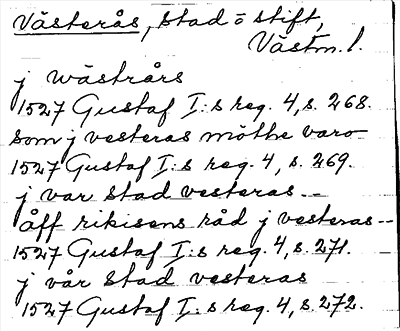 Västerås, stad o stift,
Västm. l.
j wästrårs
1527 Gustaf I:s reg. 4, s. 268.
som j vesteras möthe varo
1527 Gustaf I:s reg. 4, s. 269.
j var stad vesteras --
åff rikisens råd j vesteras --
1527 Gustaf I:s reg. 4, s. 271.
j vår stad vesteras
1527 Gustaf I:s reg. 4, s. 272.